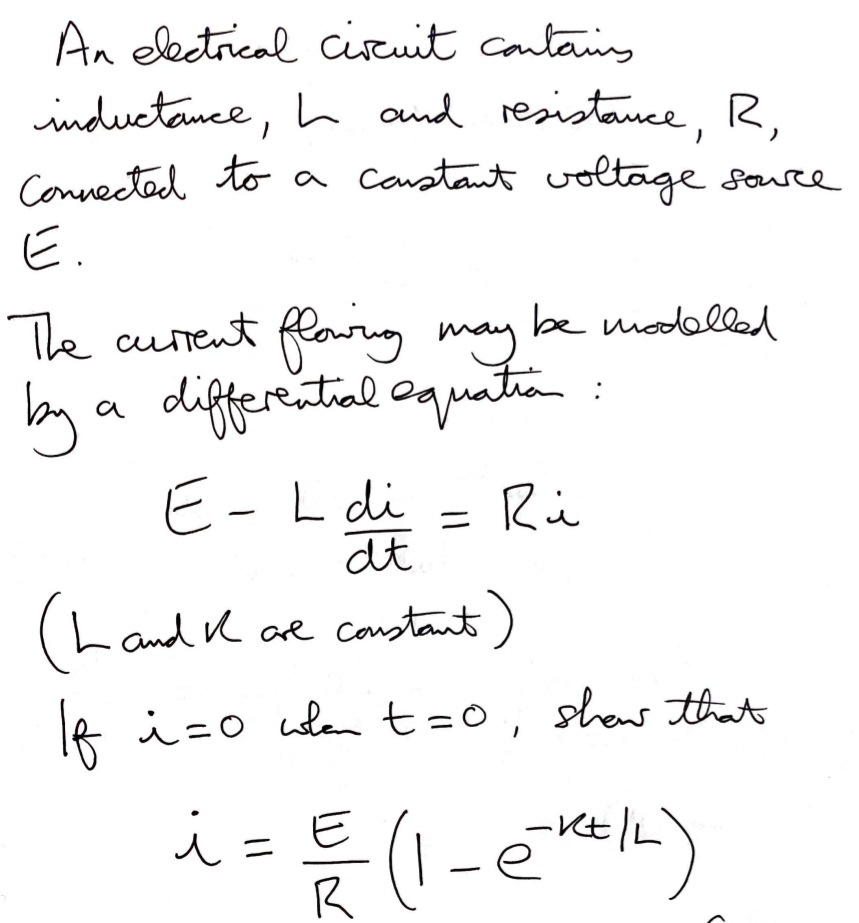 An electrical circuit contains
inductance, L and resistance, R,
connected to a constant voltage source
E.
The current flowing may be modelled
by a differential equation :
E - L di/dt = Ri
(L and R are constant)
If i=0 when t=0, show that
i = E/R (1 - e^(-Rt/L))